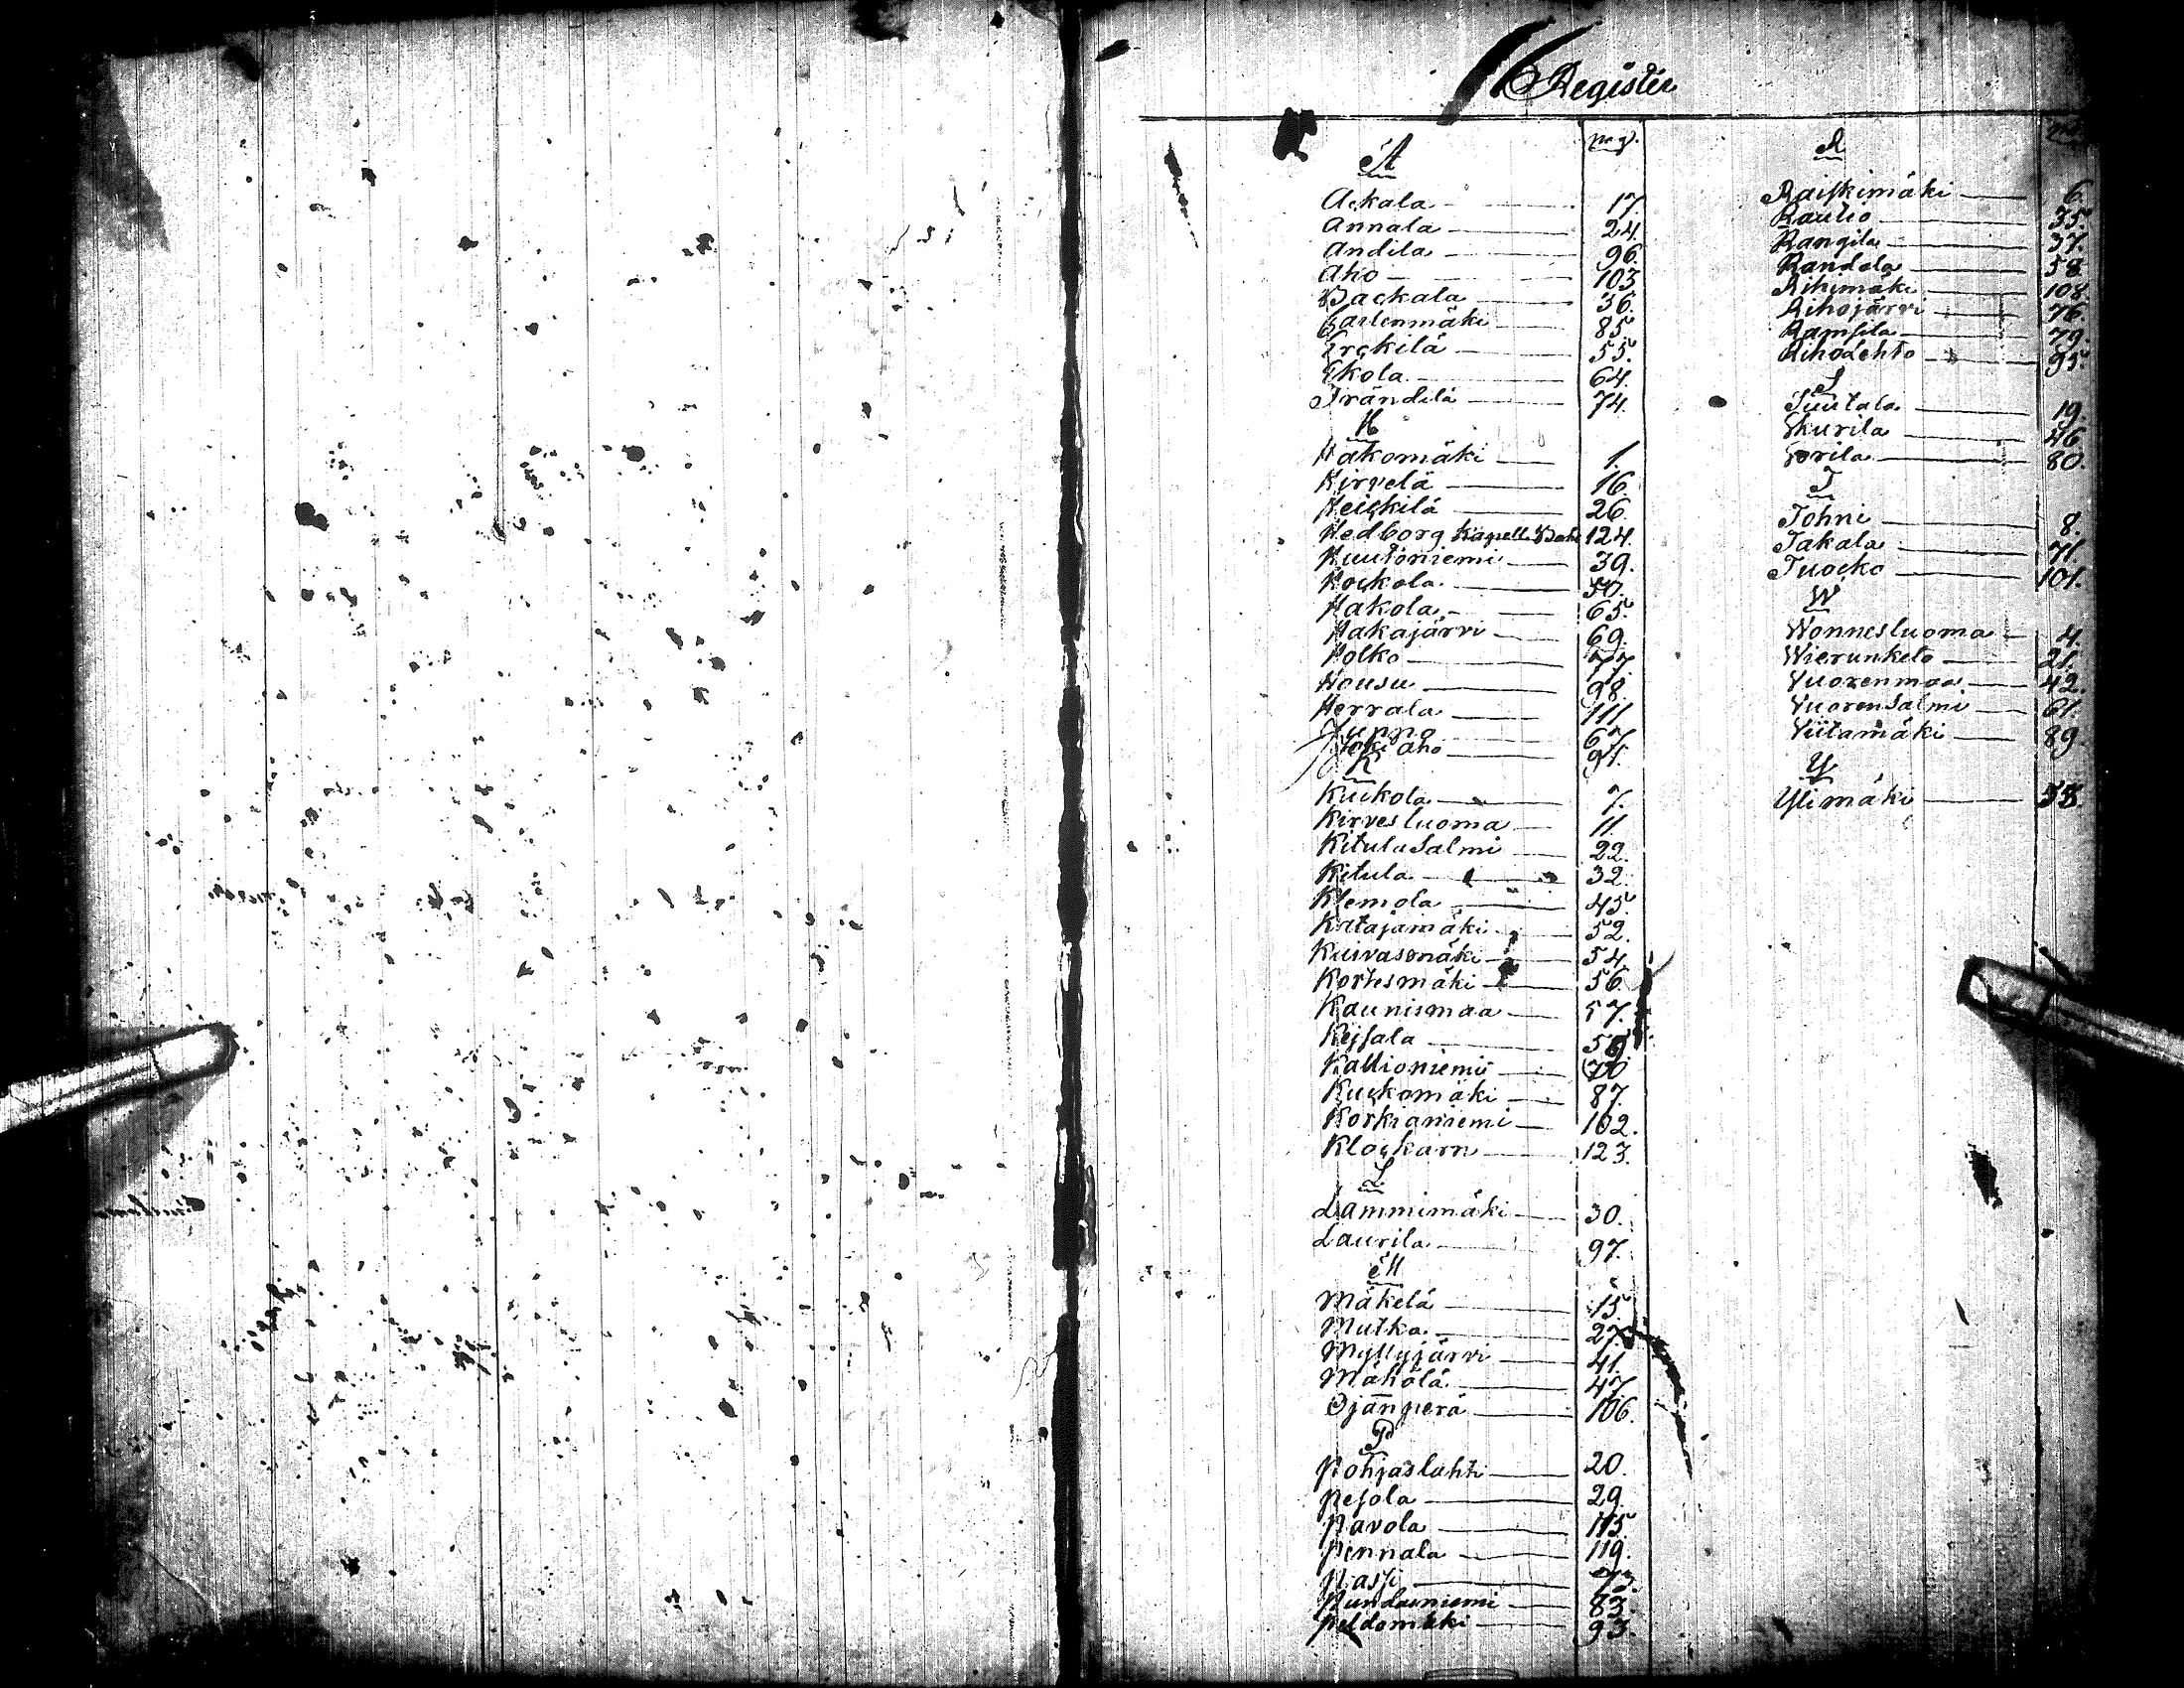 Register
A
pag.
Ackala 17.
Annala 24.
Andila 96.
Aho 103
Backala 36.
Carlenmäki 85
Erckilä 55.
Ekola 64.
Frändilä 74.
H
Hakomäki 1.
Hirvelä 16
Heickilä 26.
Hedborg Kapell. Bost. 124.
Huutoniemi 39.
Hockola 50.
Hakola 65.
Hakajärvi 69.
Holko 77.
Housu 98.
Herrala 111
Juppo 67
Joki aho 91.
K
Kuckola 7.
Kirvesluoma 11.
Kitulasalmi 22.
Kitula 32.
Klemola 45.
Katajamäki 52.
Kuivasmäki 54.
Kortesmäki 56.
Kaunismaa 57.
Keisala 59.
Kallioniemi 70
Kuckomäki 87.
Korkianiemi 102.
Klockarn 123.
L
Lamminmäki 30.
Laurila 97.
M
Mäkelä 15.
Mutka 27.
Myllyjärvi 41.
Mäkölä 47.
Ojanperä 106.
P
Pohjaslahti 20.
Pesola 29.
Pavola 115.
Pennala 119.
Passi 73.
Pundarniemi 83.
Peldomäki 93.
R
Raiskimäki 6.
Rautio 35.
Rangila 37.
Randela 58
Rihimäki 108.
Rihojärvi 76.
Ramsila 79.
Riholehto 95.
S
Suutala 19.
Skurila 46
Sorila 80.
T
Tohni 8.
Takala 71.
Tuocko 101.
W
Wonnesluoma 4.
Wierunketo 21.
Vuorenmaa 42.
Vuorensalmi 61.
Viitamäki 89.
Y
Ylimäki 38.